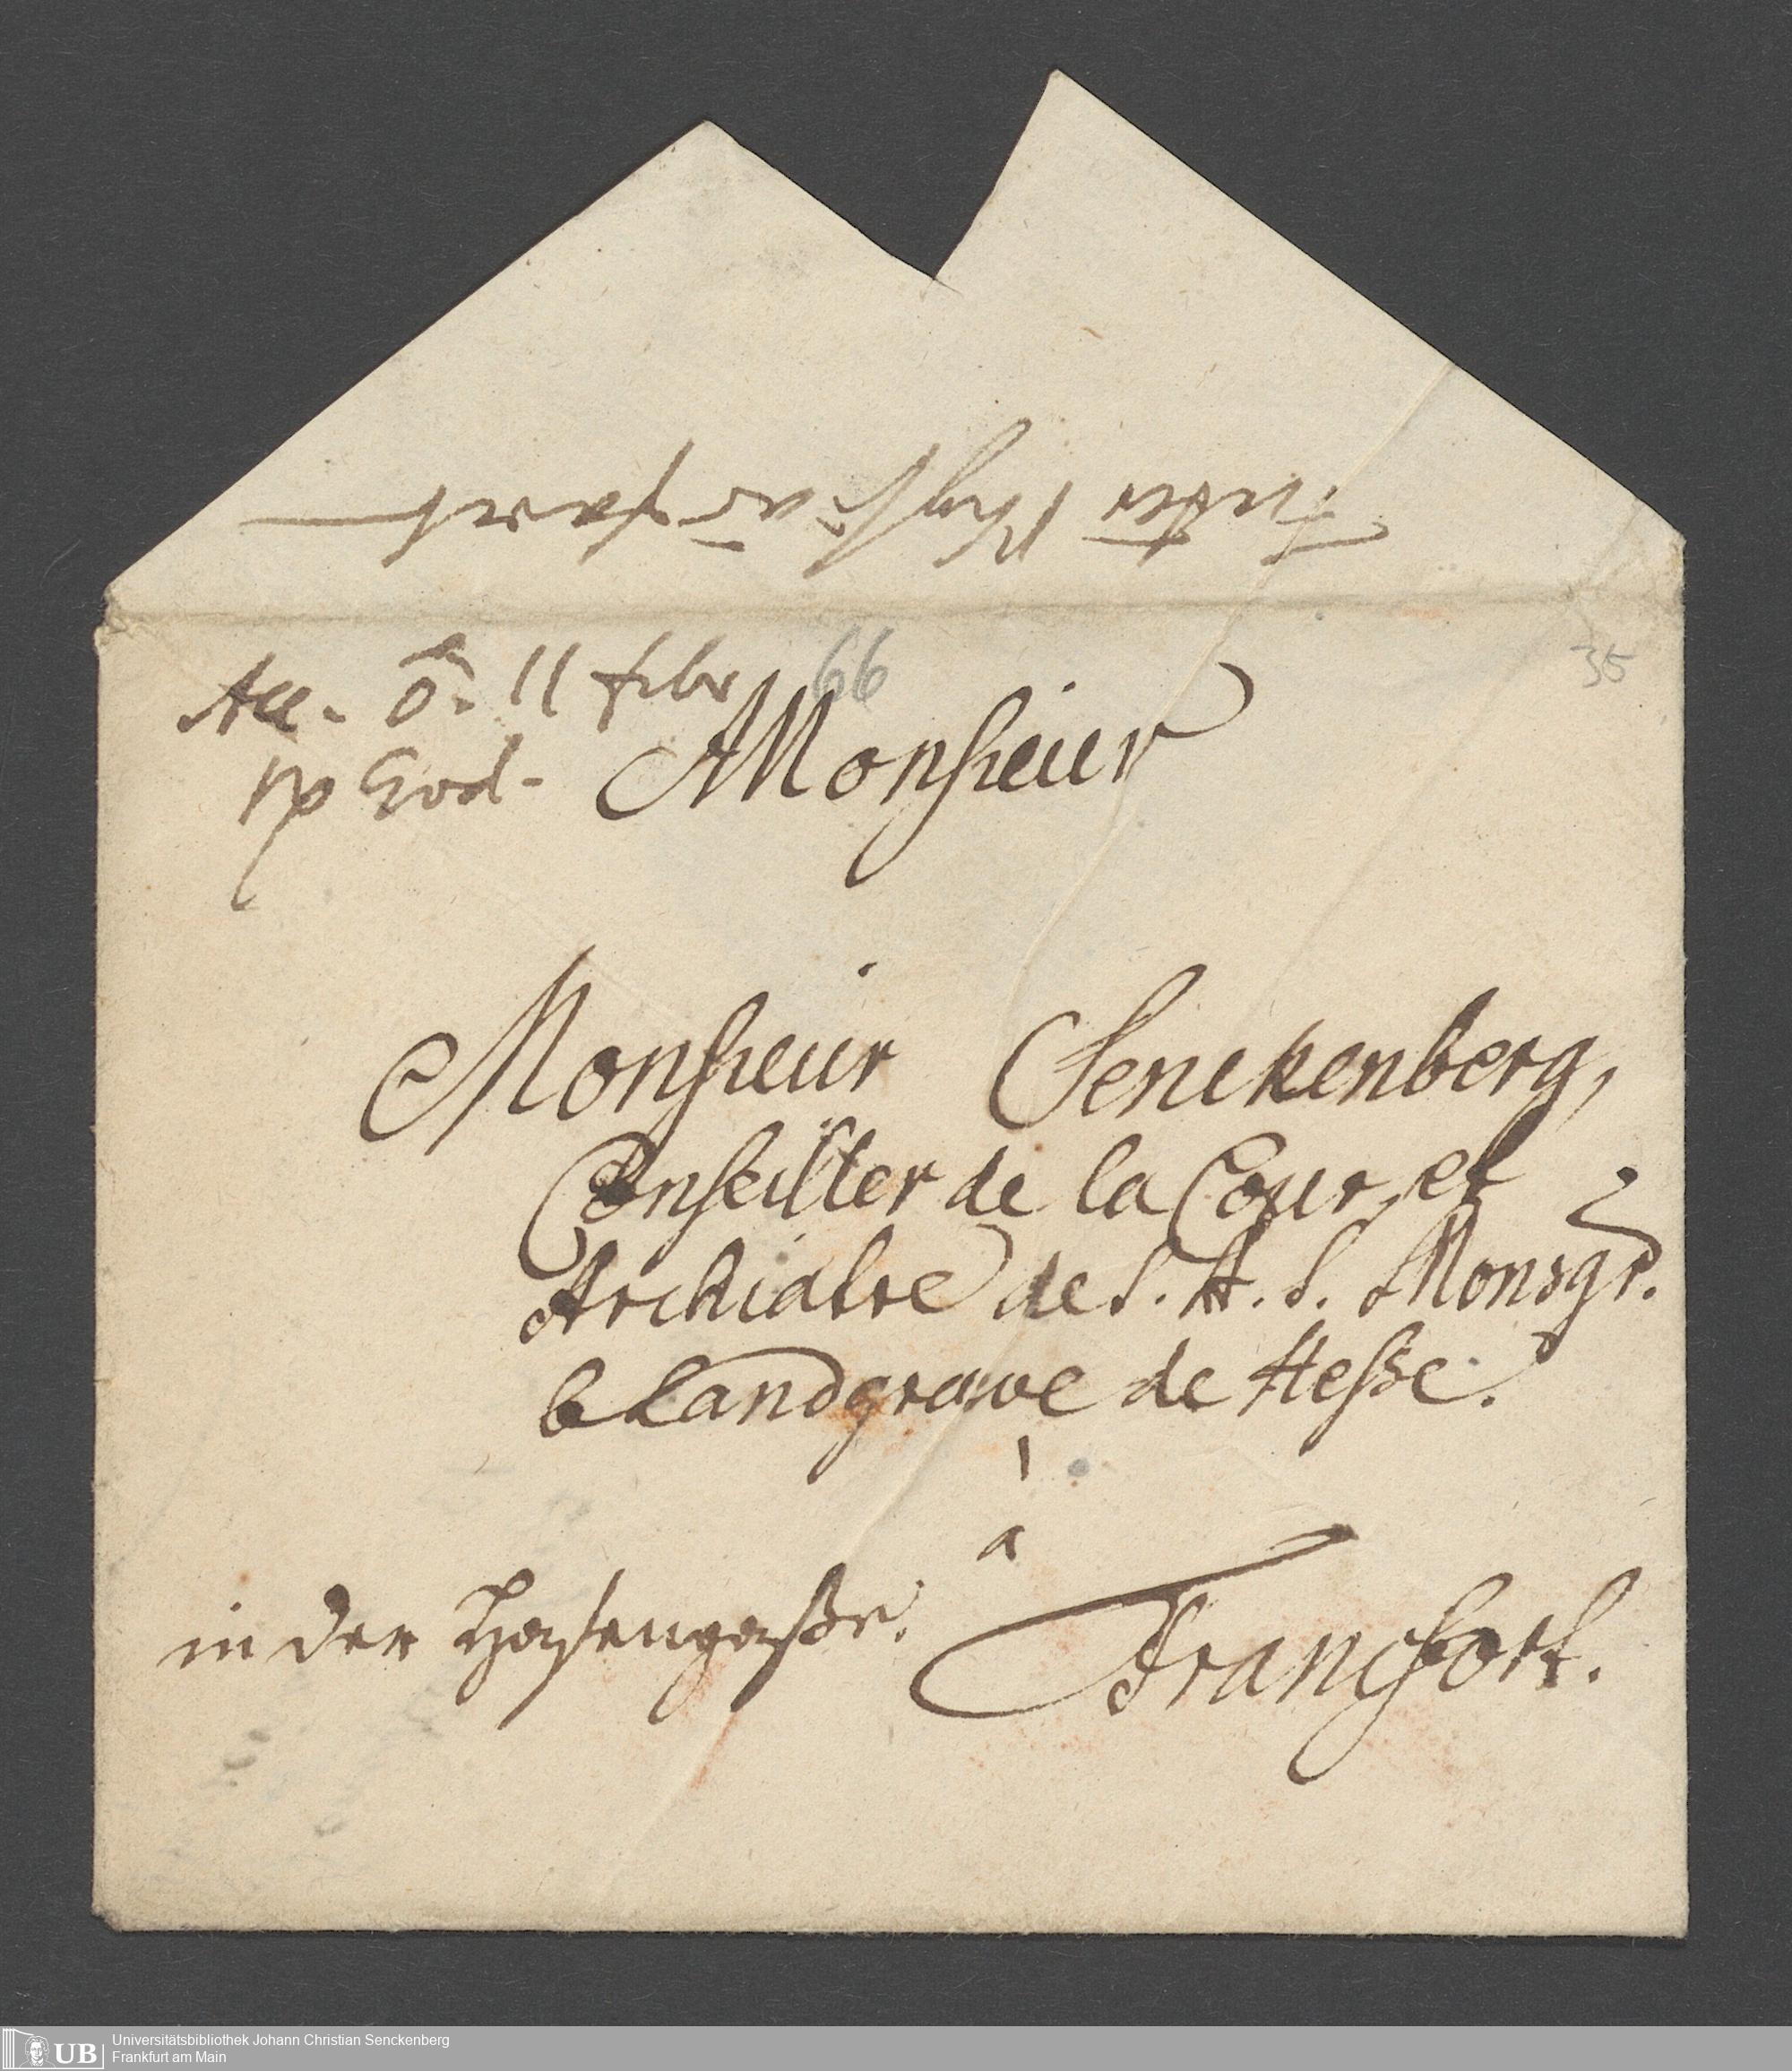 Acc. 11 febr 66
God.
35
Monsieur
Monsieur Senckenberg,
Conseiller de la Cour, et
Archiatre de S. A. S. Monsgr.
le Landgrave de Hesse.
à
in der Hasengasse. Francfort.
UB Universitätsbibliothek Johann Christian Senckenberg
Frankfurt am Main